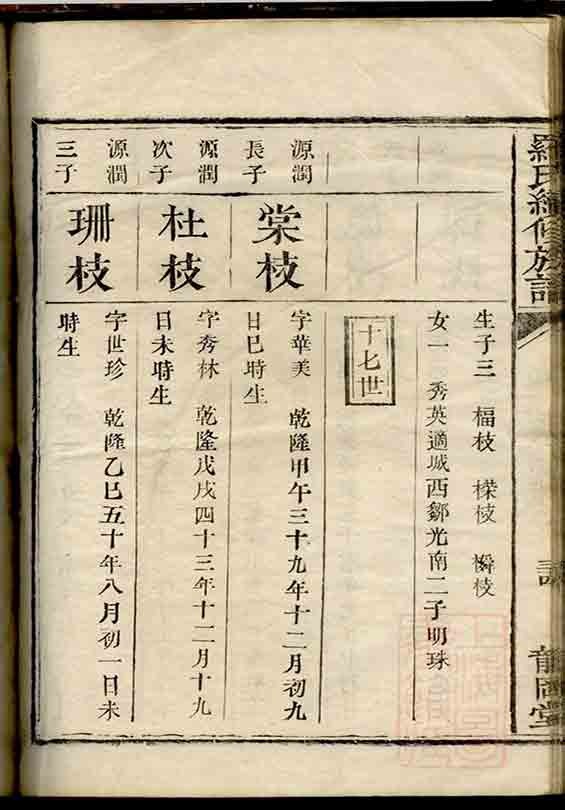 羅氏續修族譜
生子三 楅枝 檪枝 橓枝
女一 秀英適城西鄒光南二子明珠
十七世
源潤
長子
棠枝
字華美 乾隆甲午三十九年十二月初九
日巳時生
源潤
次子
杜枝
字秀林 乾隆戊戌四十三年十二月十九
日未時生
源潤
三子
珊枝
字世珍 乾隆乙巳五十年八月初一日未
時生